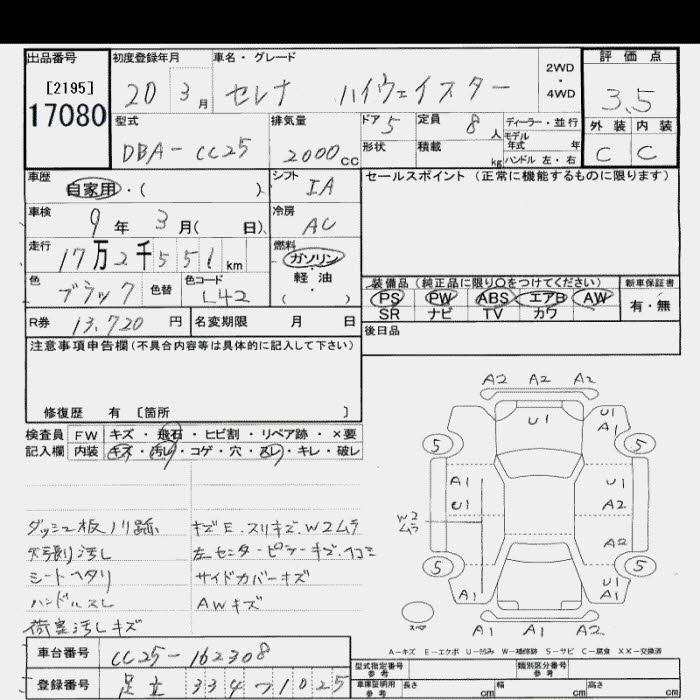 出品番号
[2195]
17080
初度登録年月
20 3月
車名・グレード
セレナ ハイウェイスター
2WD
・
4WD
評価点
3.5
外装 内装
C C
型式
DBA-CC25
排気量
2000cc
ドア 5
定員 8人
ディーラー・並行
モデル
年式 年
形状
積載 kg
ハンドル 左・右
車歴
自家用・( )
シフト
IA
セールスポイント(正常に機能するものに限ります)
車検
9年3月( 日)
冷房
AC
走行
17万2千551km
燃料
ガソリン
・
軽油
・
( )
色
ブラック
色替
色コード
L42
装備品(純正品に限り○をつけてください)
PS PW ABS エアB AW
SR ナビ TV カワ
新車保証書
有・無
R券 13,720円
名変期限 月 日
後日品
注意事項申告欄(不具合内容等は具体的に記入して下さい)
修復歴 有 [箇所 ]
検査員
記入欄
FW キズ・飛石・ヒビ割・リペア跡・×要
内装 キズ・汚レ・コゲ・穴・スレ・キレ・破レ
ダッシュ板ノリ跡
天張り汚し
シートヘタリ
ハンドルスレ
荷室汚しキズ
キズE.スリキズ.W2ムラ
左センターピラーキズ.凹ミ
サイドカバーキズ
AWキズ
A2 A2 A2
U1
U1
A1
5 5
A1
U1
W2
ムラ
U1
A2
A2
5 5
A1
U1
A1
スペア
A1 A1 A2
A-キズ E-エクボ U-凹み W-補修跡 S-サビ C-腐食 XX-交換済
車台番号 CC25-162308
登録番号 足立 334 つ 1025
型式指定番号
参考
類別区分番号
参考
車庫証明用
参考
長さ cm 幅 cm 高さ cm